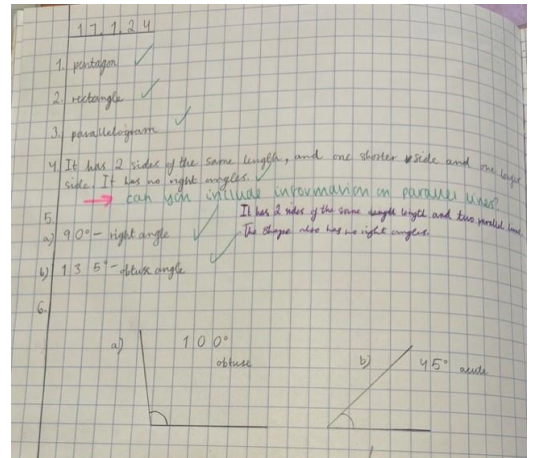 17.1.24
1. pentagon
2. rectangle
3. parallelogram
4. It has 2 sides of the same length, and one shorter side and one longer
side. It has no right angles.
can you include information on parallel lines?
It has 2 sides of the same length and two parallel lines.
The shape also has no right angles.
5.
a) 90° - right angle
b) 135° - obtuse angle
6.
a) 100°
obtuse
b) 45° acute